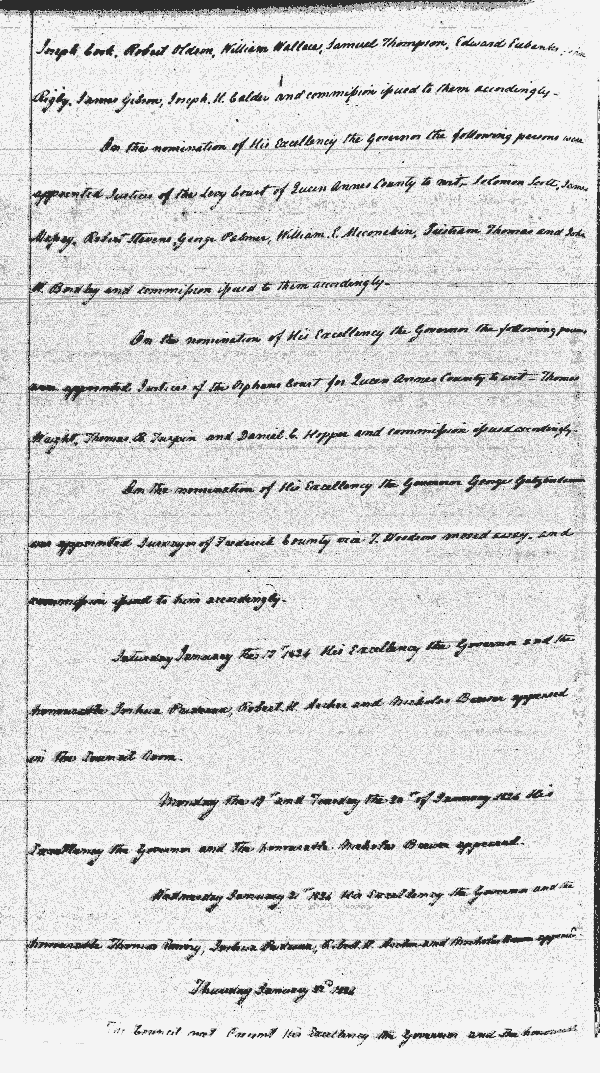 Joseph Cook, Robert Oldson, William Wallace, Samuel Thompson, Edward Eubanks,
Rigby, James Gibson, Joseph H. Calder and commission issued to them accordingly.
On the nomination of His Excellency the Governor the following persons were
appointed Justices of the Levy Court of Queen Annes County to wit, Solomon Scott, James
Massey, Robert Stevens, George Palmer, William E. Meconekin, Tristram Thomas and John
W. Bordley and commission issued to them accordingly.
On the nomination of His Excellency the Governor the following persons
were appointed Justices of the Orphans Court for Queen Annes County to wit - Thomas
Wright, Thomas B. Turpin and Daniel C. Hopper and commission issued accordingly.
On the nomination of His Excellency the Governor George
was appointed Surveyor of Frederick County vice T. moved away, and
commission issued to him accordingly.
Saturday January the 17th 1824 His Excellency the Governor and the
honourable Joshua Prideaux, Robert H. Archer and Nicholas Brewer appeared
in the Council Room.
Monday the 19th and Tuesday the 20th of January 1824 His
Excellency the Governor and the honourable Nicholas Brewer appeared.
Wednesday January 21st 1824 His Excellency the Governor and the
honourable Thomas Davy, Joshua Prideaux, Robert H. Archer and Nicholas Brewer appeared
Thursday January 22d 1824
The Council met Present His Excellency the Governor and the honourable